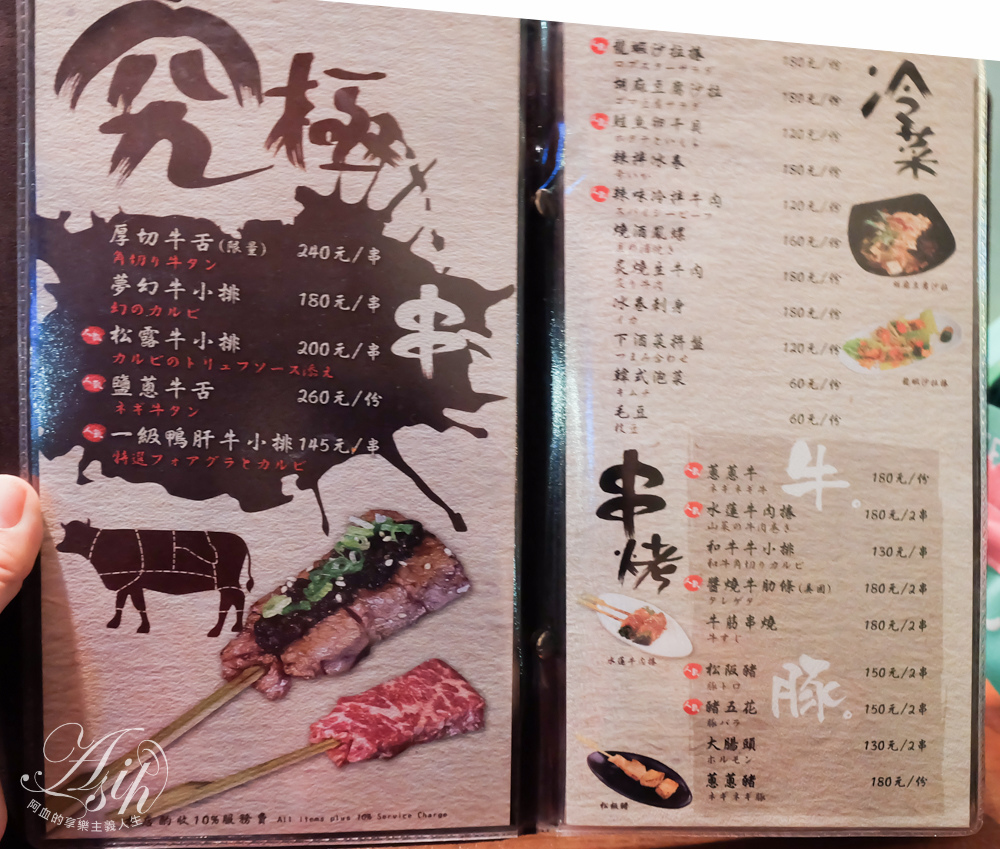 究極
串
厚切牛舌(限量) 240元/串
角切り牛タン
夢幻牛小排 180元/串
幻のカルビ
人氣 松露牛小排 200元/串
カルビのトリュフソース添え
人氣 鹽蔥牛舌 260元/份
ネギ牛タン
人氣 一級鴨肝牛小排 145元/串
特選フォアグラとカルビ
酌收10%服務費 All items plus 10% Service Charge
Asih
阿血的享樂主義人生
冷菜
龍蝦沙拉捲 180元/份
ロブスターサラダ
胡麻豆腐沙拉 180元/份
ゴマ豆腐サラダ
鮭魚卵干貝 120元/份
辣拌冰卷 180元/份
辣味冷拌牛肉 120元/份
スパイシービーフ
燒酒鳳螺 160元/份
炙燒生牛肉 180元/份
炙り牛肉
冰卷刺身 180元/份
イカ
下酒菜拼盤 120元/份
つまみ合わせ
韓式泡菜 60元/份
キムチ
毛豆 60元/份
枝豆
胡麻豆腐沙拉
龍蝦沙拉捲
串烤
牛。
蔥蔥牛 180元/份
ネギネギ牛
水蓮牛肉捲 180元/2串
山菜の牛肉巻き
和牛牛小排 130元/串
和牛角切りカルビ
醬燒牛肋條(美國) 180元/2串
タレゲタ
牛筋串燒 180元/2串
牛すじ
水蓮牛肉捲
豚。
松阪豬 150元/2串
豚トロ
豬五花 150元/2串
豚バラ
大腸頭 130元/2串
ホルモン
蔥蔥豬 180元/份
ネギネギ豚
松阪豬